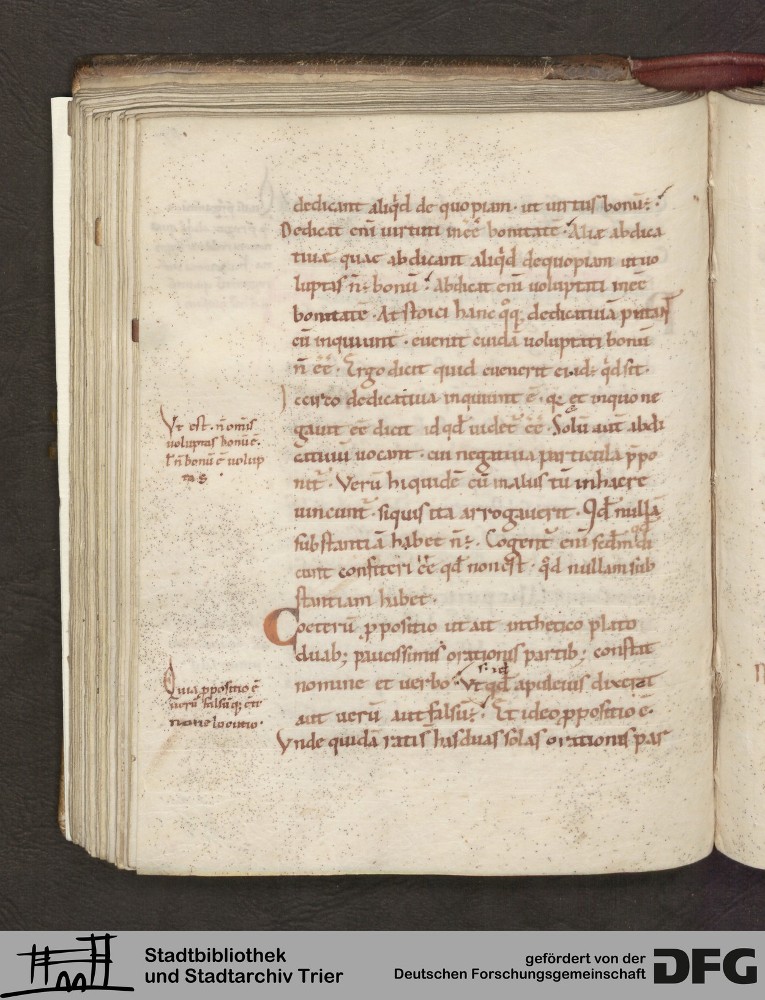 dedicant aliq̄d de quopiam · ut uirtus bonū ÷
Dedicat eni uirtuti inēē bonitatē · Aliæ abdica
tiuæ quae abdicant aliq̄d dequopiam ut uo
luptas n̄ ÷ bonū · Abdicat eni uoluptati inēē
bonitatē · At stoici hanc qq; dedicatiuā putant
cū inquiunt · euenit cuidā uoluptati bonū
n̄ ēē · Ergo dicit quid euenerit ei · id ÷ qd sit ·
Iccirco dedicatiua inquiunt ē · q; et inquo ne
gauit ēē dicit id qd uidet̄ ēē · Solū aut abdi
catiuū uocant · cui negatiua particula p̄po
nit̄ · Verū hi quidē cū in aliis tū in hac re
uincunt̄ · siquis ita rogauerit · Qd nullā
substantiā habet n̄ ÷ · Cogent̄ eni scdm di
cant confiteri ēē qd non est · qd nullam sub
stantiam habet ·
Coeterū p̱positio ut ait intheteco plato
duab; paucissimis orationis partib; constat
nomine et uerbo · Vt qd apuleius dixerat
aut uerū aut falsū ÷ · Et ideo p̱positio ē ·
Vnde quidā ratis has duas solas orationis par
Vt est · n̄ omis
uoluptas bonū ē ·
ł n̄ bonū ē uolup
tas ·
Quia p̱positio ē
uerū falsūq; ...
non elocutio ·
Stadtbibliothek
und Stadtarchiv Trier
gefördert von der
Deutschen Forschungsgemeinschaft
DFG